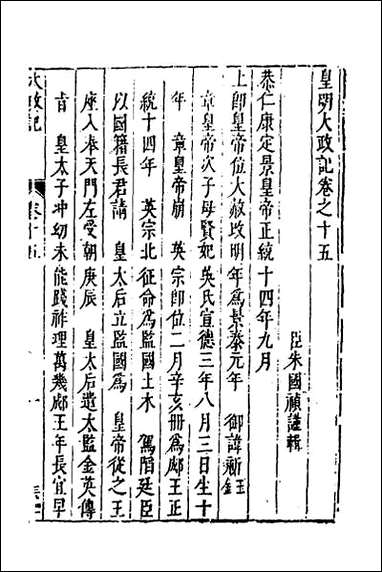 皇明大政記卷之十五
臣朱國禎謹輯
恭仁康定景皇帝正統十四年九月
上卽皇帝位大赦改明年爲景泰元年　御諱祁鈺
章皇帝次子母賢妃吳氏宣德三年八月三日生十
年　章皇帝崩　英宗卽位二月辛亥冊爲郕王正
統十四年　英宗北征命爲監國土木　駕陷廷臣
以國籍長君請　皇太后立監國爲　皇帝從之王
座入奉天門左受朝庚辰　皇太后遣太監金英傳
旨　皇太子冲幼未能踐祚理萬幾郕王年長宜早
大政記
卷十五
一